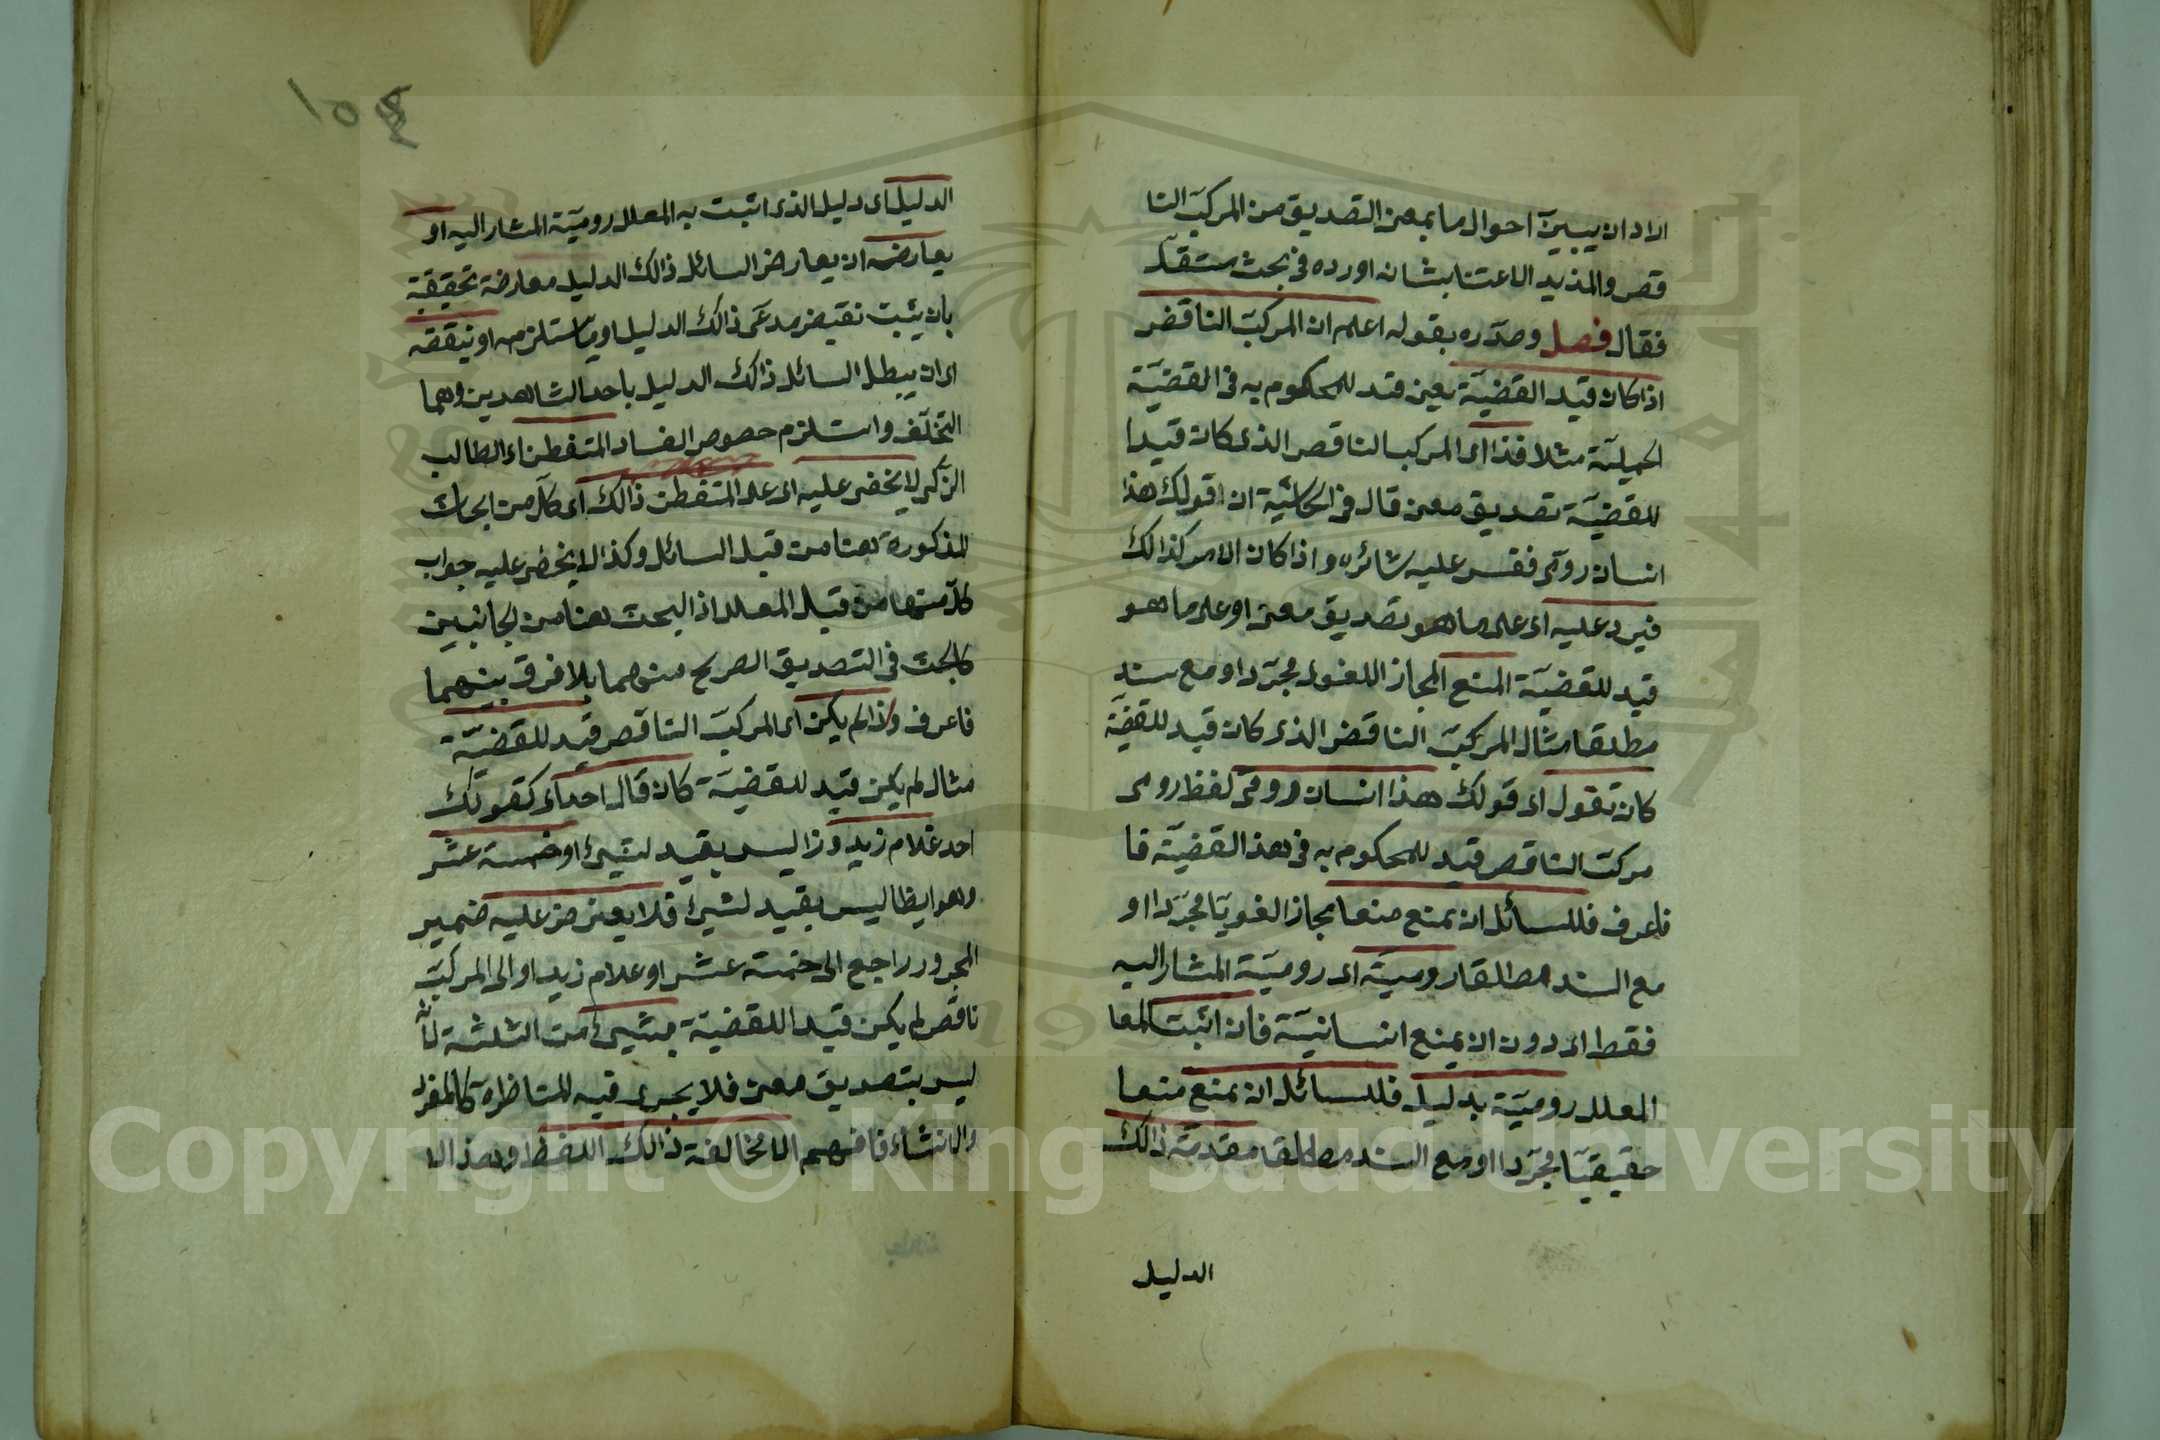 الاد ان يبين احوال ما بمعن التصديق من المركب النا
قص والمذيد الاعتنا بشانه اورده فى بحث مستقل
فقال فصل وصدره بقوله اعلم ان المركب الناقض
اذا كان قيد القضية يعين قيد للمحكوم به فى القضية
الحملية مثلا فذا اى المركب الناقص الذى كان قيدا
للقضية تصديق معن قال فى الحاشية ان قولك هذا
انسان رومى فقس عليه سائره واذا كان الامر كذالك
فيرد عليه اى على ما هو تصديق معن او على ما هو
قيد للقضية المنع المجاز اللغوى مجردا و مع سند
مطلقا مثال المركب الناقض الذى كان قيد للقضية
كان تقول اى قولك هذا انسان رومى لفظ رومى
مركب الناقص قيد للمحكوم به فى هذا القضية فا
فاعرف فللسائل ان يمنع منعا مجازا لغويا مجردا او
مع السند مطلقا رومية اى رومية المشار اليه
فقط اى دون ان يمنع انسانية فان اثبت المعا
المعلل رومية بدليل فللسائل ان يمنع منعا
حقيقيا مجردا او مع السند مطلقا مقدمة ذالك
الدليل
١٥٤
الدليل اى دليل الذى اثبت به المعلل رومية المشار اليه او
يعارضه ان يعارض السائل ذالك الدليل معارضة تحقيقية
بان يثبت نقيض مدعى ذالك الدليل او ما ستلزمه او ينقضه
اى ان يبطل السائل ذالك الدليل باحد الشاهدين وهما
التخلف واستلزم خصوص الفساد المتفطن اء الطالب
الزكى لا يخفى عليه اى على المتفطن ذالك اى كلا من ابحاث
المذكورة هنا من قبل السائل وكذا لا يخفى عليه جواب
كلا منها من قبل المعلل اذ البحث هنا من الجانبين
كالبحث فى التصديق الصريح منهما بلا فرق بينهما
فاعرف واذا لم يكن اى المركب الناقص قيد للقضية
مثال لم يكن قيد للقضية كان قال احد اى كقولك
احد غلام زيد وذا ليس بقيد لشئ او خمسة عشر
وهو ايظا ليس بقيد لشئ فلا يعترض عليه ضمير
المجرور راجع الى خمسة عشر او غلام زيد او الى المركب
ناقص لم يكن قيدا للقضية بشئ من الثلثة لانه
ليس بتصديق معن فلا يجرى فيه المناظرة كالمفرد
والانشاء فافهم الا مخالفة ذالك اللفظ وهذا الا
Copyright © King Saud University